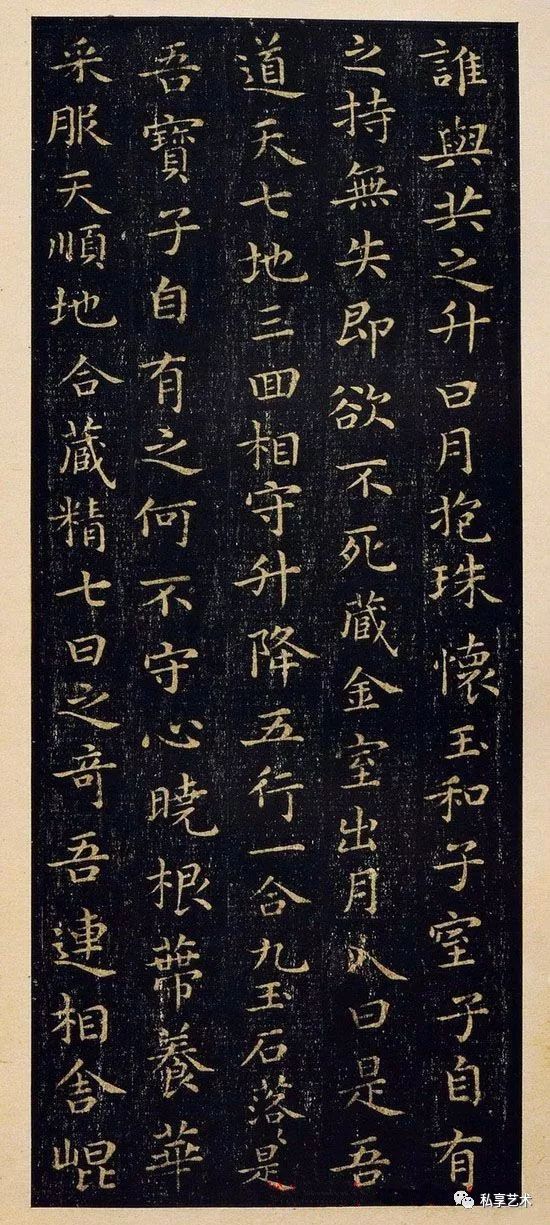 誰與共之升日月抱珠懷玉和子室子自有
之持無失即欲不死藏金室出月入日是吾
道天七地三回相守升降五行一合九玉石落〻是
吾寶子自有之何不守心曉根蔕養華
采服天順地合藏精七日之奇吾連相舎崐
私享艺术